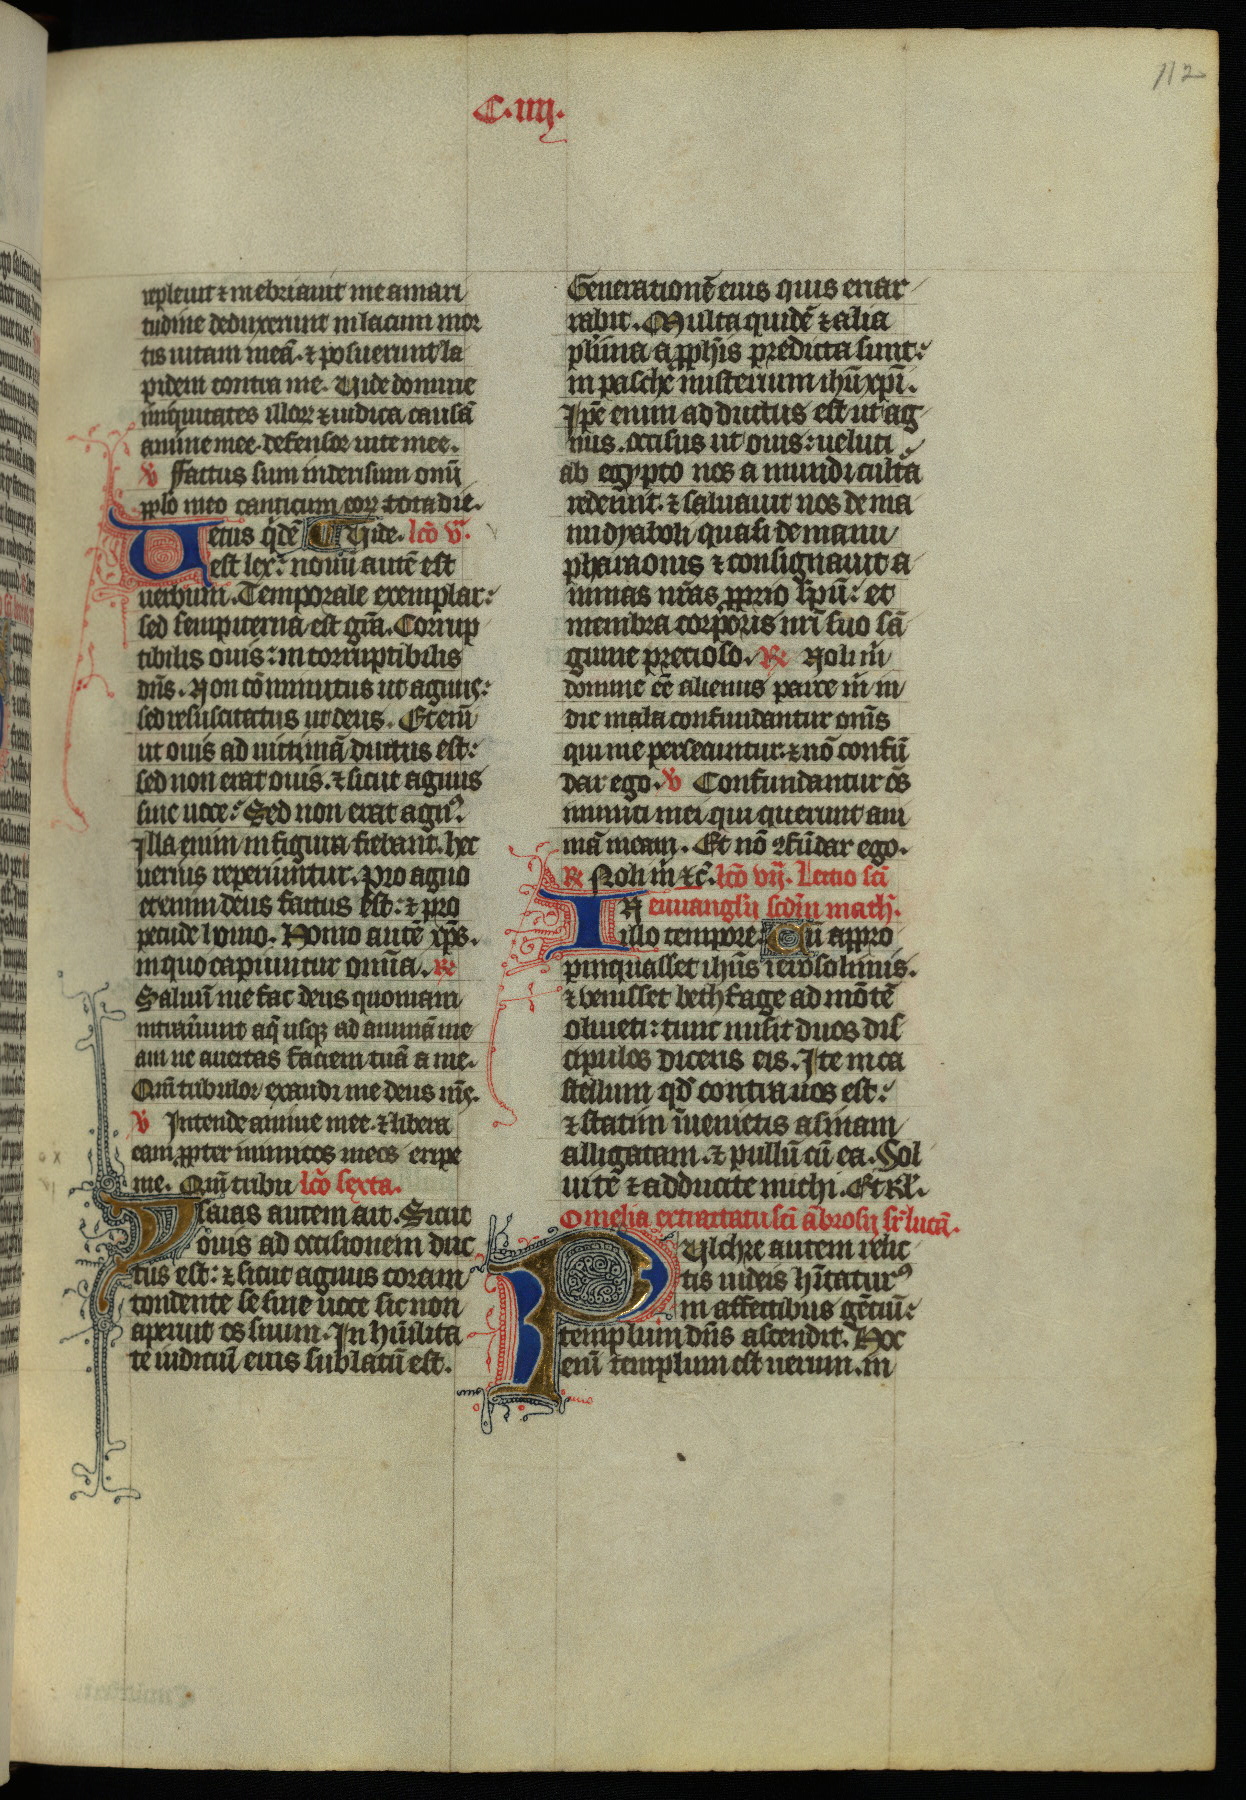 112
C.iiij.
repleuit ⁊ inebriauit me amari
tudine deduxerunt in lacum mor
tis uitam meā. ⁊ posuerunt la
pidem contra me. Uide domine
iniquitates illoꝝ ⁊ iudica causā
anime mee. defensor uite mee.
v̄ Factus sum in derisum om̄i
pp̄lo meo canticum eoꝝ tota die.
Uetus q̇dē Uide. lc̄o v.ᵃ
est lex: nouū autē est
uerbum. Temporale exemplar:
sed sempiterna est gr̄a. Corrup
tibilis ouis: incorruptibilis
dn̄s. Non cōminutus ut agnus:
sed resuscitatus ut deus. Etem̄
ut ouis ad uictimā ductus est:
sed non erat ouis. ⁊ sicut agnus
sine uoce: Sed non erat agnꝰ.
Illa enim in figura fiebant. hec
uerius reperiuntur. Pro agno
etenim deus factus est: ⁊ pro
pecude homo. Homo autē xp̄s.
in quo capiuntur omnia. ℟
Saluū me fac deus quoniam
intrauerunt aq̄ usqꝫ ad animā me
am ne auertas faciem tuā a me.
Qm̄ tribulor exaudi me deus ms̄.
v̄ Intende anime mee ⁊ libera
eam ꝓpter inimicos meos eripe
me. Qm̄ tribu lc̄o sexta.
Isaias autem ait. Sicut
ouis ad occisionem duc
tus est: ⁊ sicut agnus coram
tondente se sine uoce sic non
aperuit os suum. In hūilita
te iudiciū eius sublatū est.
Generationē eius quis enar
rabit. Multa quidē ⁊ alia
plurima a ꝓphīs predicta sunt:
in pasche misterium ihū xp̄i.
Ipē enim adductus est ut ag
nus. occisus ut ouis: ueluti
ab egypto nos a mundi cultā
redemit. ⁊ saluauit nos de ma
nu dyaboli quasi de manu
pharaonis ⁊ consignauit a
nimas nr̄as ꝓprio sp̄u: et
membra corporis nr̄i suo sā
guine precioso. ℟ Noli m̄
domine eē alienus parce m̄ in
die mala confundantur om̄s
qui me persecuntur. ⁊ nō confū
dar ego. v̄ Confundantur ōs
inimici mei qui querunt ani
mā meam. Et nō ꝯfūdar ego.
℟ Noli m̄ ⁊c̄. lc̄o vij. Lectio sc̄i
IN euuangl̄ij scd̄m math̄.
illo tempore: Cū appro
pinquasset ihūs ierosolimis.
⁊ uenisset bethfage ad mōtē
oliueti: tunc misit duos dis
cipulos dicens eis. Ite in ca
stellum qd̄ contra uos est:
⁊ statim īuenietis asinam
alligatam. ⁊ pullū cū ea. Sol
uite ⁊ adducite michi. Et Rl̄.
Omelia ex tractatu sc̄i ābrosij sr̄ lucā.
Pulchre autem relic
tis iudeis hītaturꝰ
in affectibus gētiū:
templum dn̄s ascendit. Hoc
enī templum est uerum. in